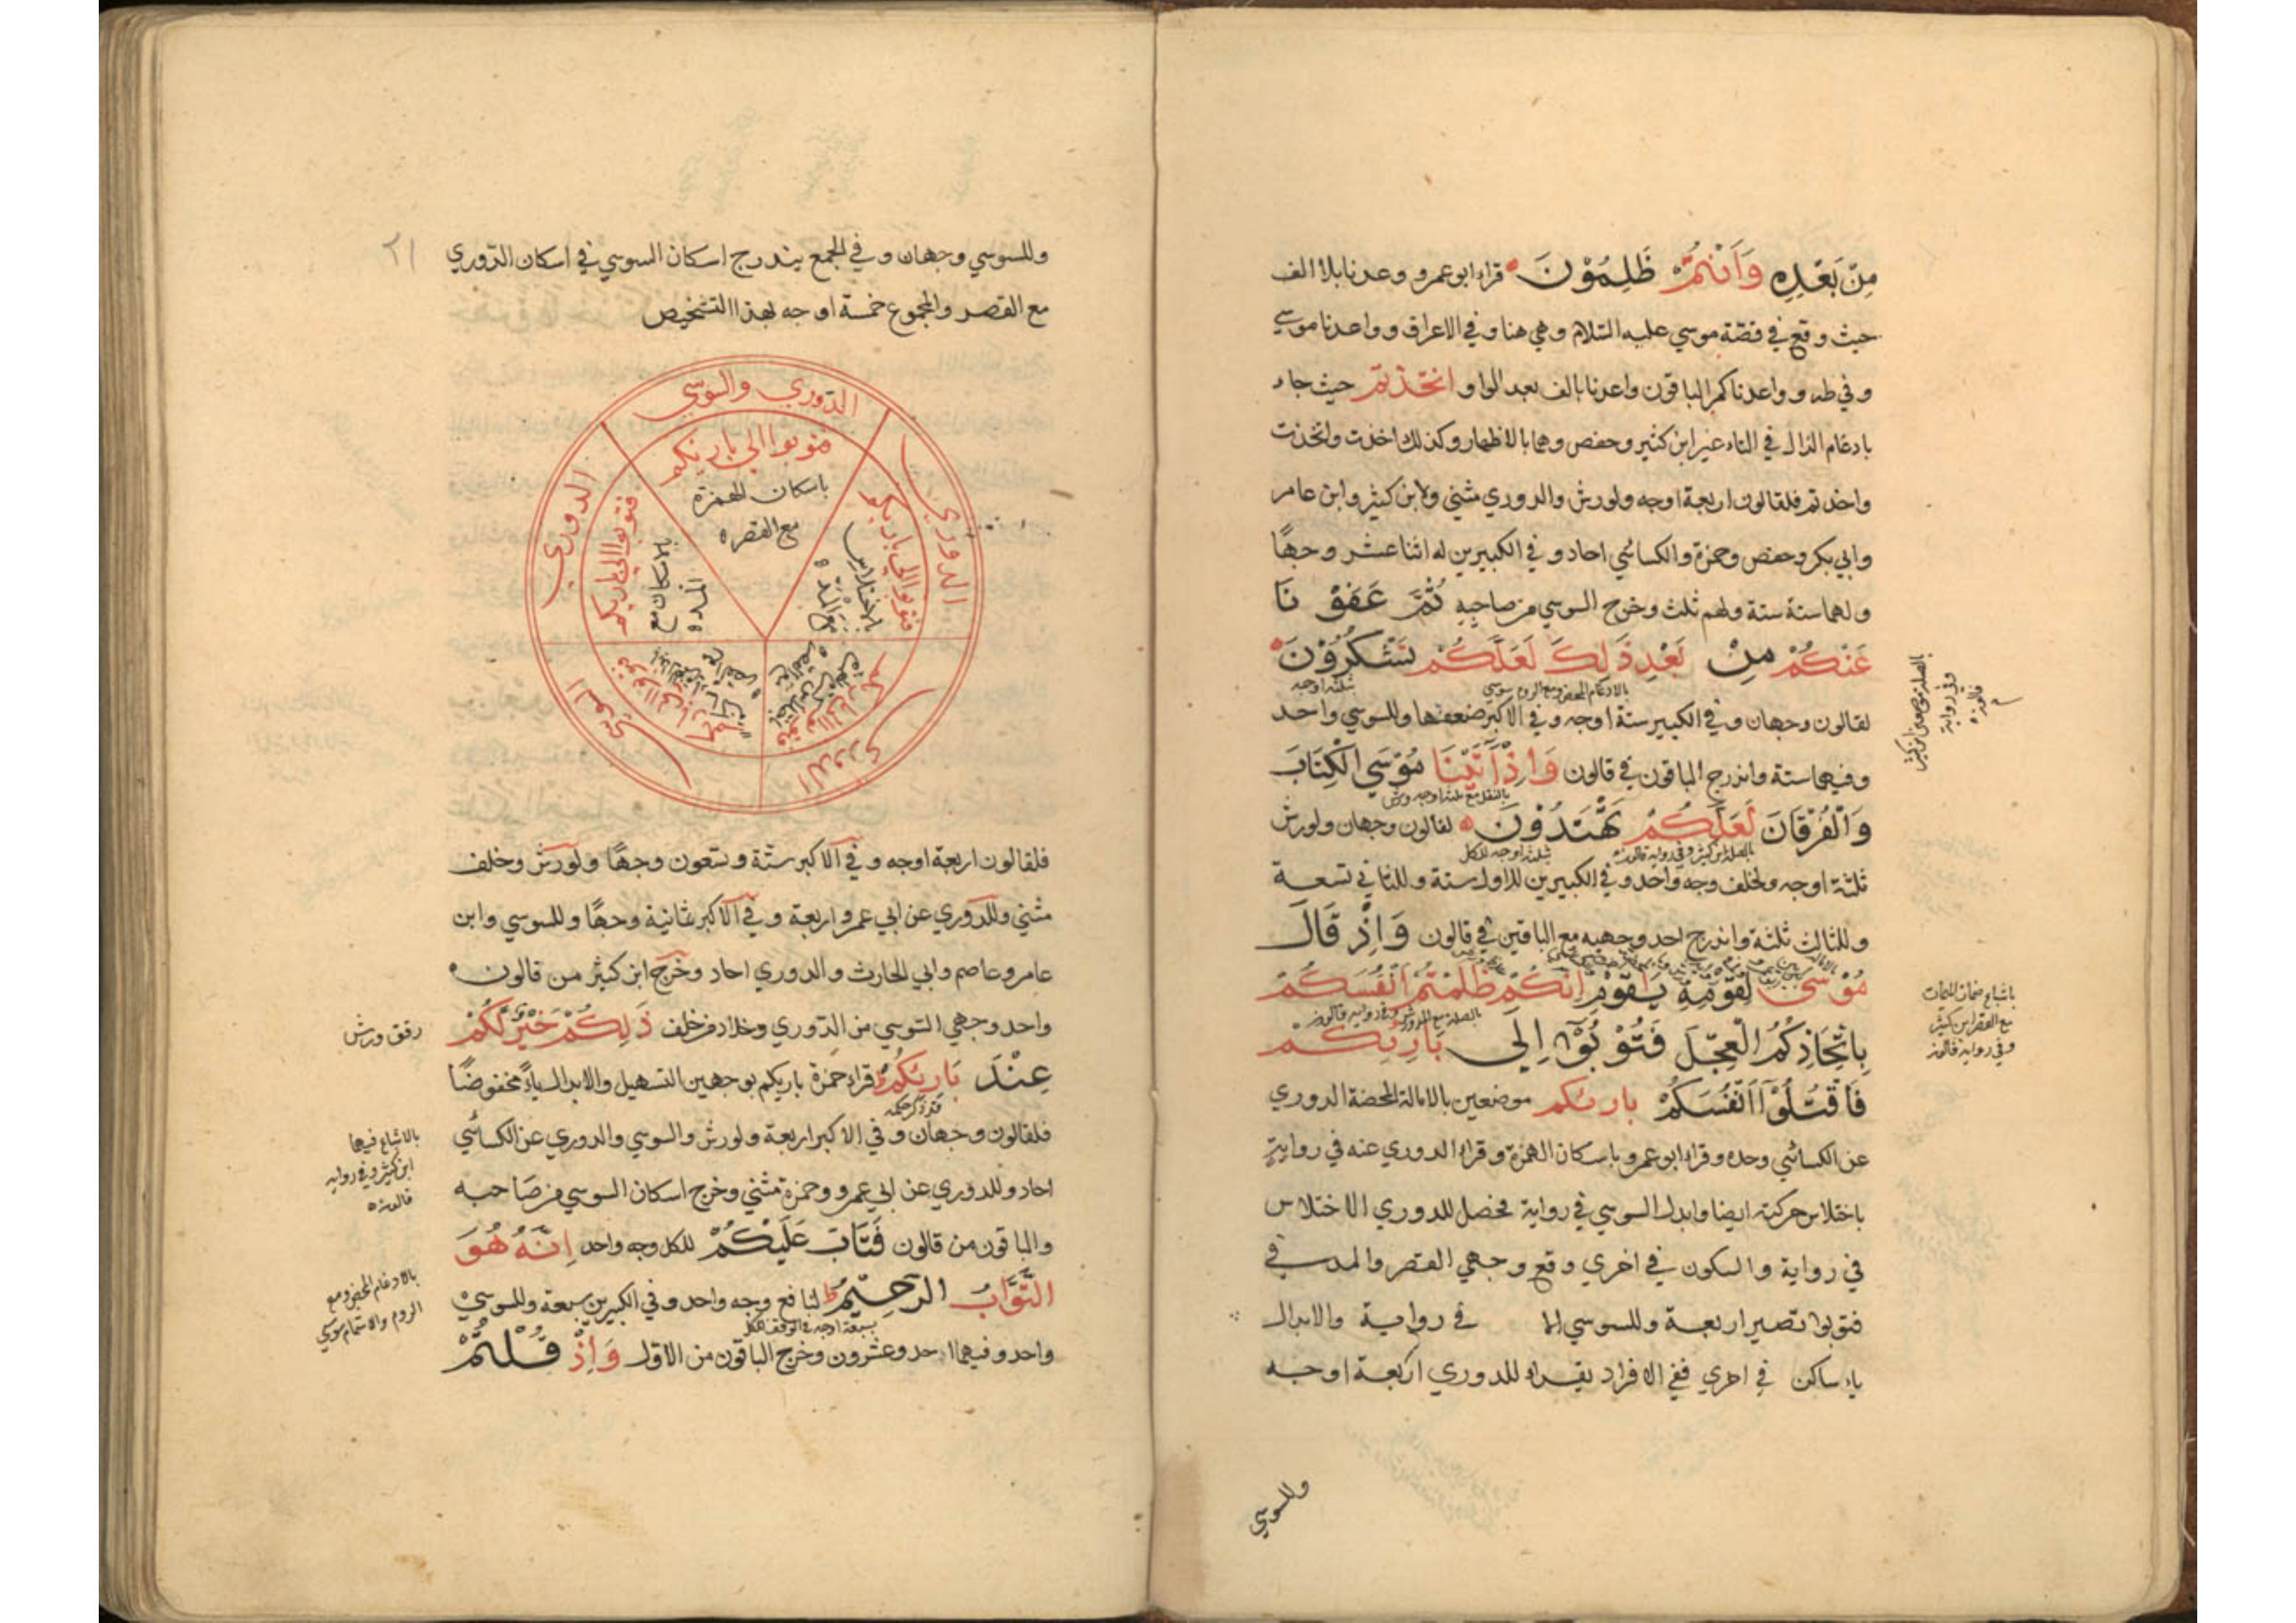 مِنْ بَعْدِهِ وَاَنْتُمْ ظٰلِمُوْنَ قراء ابو عمرو وعدنا بلا الف
حيث وقع في قصّة موسي عليه السّلام وهي هنا وفي الاعراف وواعدنا موسي
وفي طه وواعدناكم الباقون واعدنا بالف بعد الواو اتخذتم حيث جاء
بادغام الذال في التاء غير ابن كثير وحفص وهما بالاظهار وكذلك اخذت واتخذت
واخذتم فلقالون اربعة اوجه ولورش والدوري مثني ولابن كثير وابن عامر
وابي بكر وحفص وحمزة والكسائي احاد وفي الكبيرين له اثنا عشر وجهًا
ولهما ستة ستة ولهم ثلث وخرج السوسي من صاحبه ثُمَّ عَفَوْنَا
عَنْكُمْ مِنْ بَعْدِ ذٰلِكَ لَعَلَّكُمْ تَشْكُرُوْنَ
بالادغام المحض ومع الروم سوسي ثلثة اوجه
لقالون وجهان وفي الكبير ستة اوجه وفي الاكبر ضعفها وللسوسي واحد
وفيهما ستة واندرج الباقون في قالون وَاِذْ اٰتَيْنَا مُوْسَي الْكِتَابَ
بالنقل مع ثلثة اوجه ورش
وَالْفُرْقَانَ لَعَلَّكُمْ تَهْتَدُوْنَ لقالون وجهان ولورش
بالصلة ابن كثير وفي رواية قالون ثلثة اوجه للكل
ثلثة اوجه ولخلف وجه واحد وفي الكبيرين للاول ستة وللثاني تسعة
وللثالث ثلثة واندرج احد وجهيه مع الباقين في قالون وَاِذْ قَالَ
مُوْسٰي لِقَوْمِهٖ يٰقَوْمِ اِنَّكُمْ ظَلَمْتُمْ اَنْفُسَكُمْ
بالصلة مع المد ورش وفي رواية قالون
بِاتِّخَاذِكُمُ الْعِجْلَ فَتُوْبُوْٓا اِلٰي بَارِئِكُمْ
فَاقْتُلُوْٓا اَنْفُسَكُمْ بارئكم موضعين بالامالة المحضة الدوري
عن الكسائي وحده وقراء ابو عمرو باسكان الهمزة وقراء الدوري عنه في رواية
باختلاس حركته ايضا وابدل السوسي في رواية فحصل للدوري الاختلاس
في رواية والسكون في اخري وقع وجهي القصر والمد في
فتوبوا تصير اربعة وللسوسي في رواية والابدال
ياء ساكن في اخري ففي الافراد يقراء للدوري اربعة اوجه
وللسوسي
وفي رواية
قالون
باشباع ضمات الميمات
مع القصر ابن كثير
وفي رواية قالون
٢١
وللسوسي وجهان وفي الجمع يندرج اسكان السوسي في اسكان الدّوري
مع القصر والمجموع خمسة اوجه بهذا التشخيص
الدّوري والسوسي
فتوبوا الي بارئكم
باسكان الهمزة
مع القصر
الدوري
فتوبوا الي بارئكم
باختلاس
مع المد
الدوري
السوسي
الدوري
فتوبوا الي بارئكم
بالاسكان مع
المد
فلقالون اربعة اوجه وفي الاكبر ستّة وتسعون وجهًا ولورش وخلف
مثني وللدوري عن ابي عمرو اربعة وفي الاكبر ثمانية وجهًا وللسوسي وابن
عامر وعاصم وابي الحارث والدوري احاد وخرج ابن كثير من قالون
واحد وجهي السّوسي من الدّوري وخلاد من خلف ذٰلِكُمْ خَيْرٌ لَّكُمْ
عِنْدَ بَارِئِكُمْ قراء حمزة بارئكم بوجهين التسهيل والابدال ياءً مخفوضًا
قد ذكر حكمه
فلقالون وجهان وفي الاكبر اربعة ولورش والسوسي والدوري عن الكسائي
احاد وللدوري عن ابي عمرو وحمزة مثني وخرج اسكان السوسي من صاحبه
والباقون من قالون فَتَابَ عَلَيْكُمْ للكل وجه واحد اِنَّهٗ هُوَ
التَّوَّابُ الرَّحِيْمُ لنافع وجه واحد وفي الكبيرين سبعة وللسوسي
سبعة اوجه في الوقف للكل
واحد وفيهما احد وعشرون وخرج الباقون من الاول وَاِذْ قُلْتُمْ
رقق ورش
بالاشباع فيهما
ابن كثير وفي رواية
قالون
بالادغام المحض ومع
الروم والاشمام سوسي